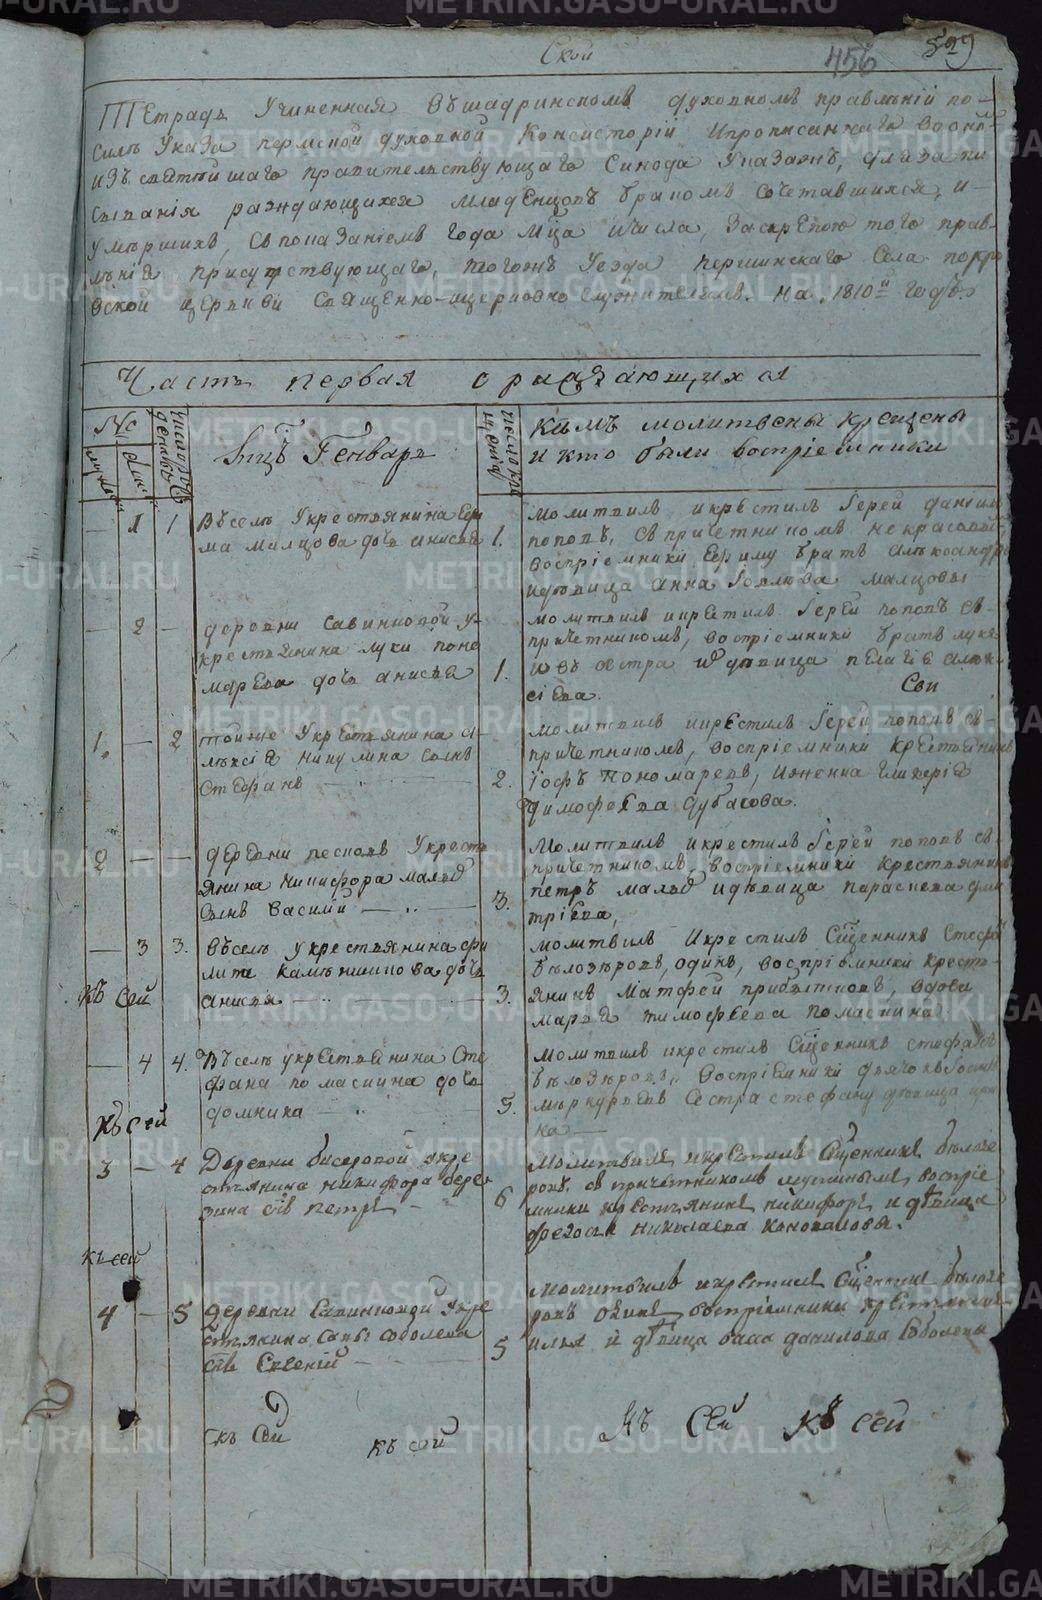 Ской
456
529
Тетрадь Учиненная въ шадринскомъ духовномъ правленіи по
силѣ Указа пермской духовной Консисторіи и прописаннаго во оно
изъ святѣйшаго правительствующаго Синода Указанъ, для запи
сыванія раждающихся младенцовъ бракомъ сочетавшихся, и
умершихъ, съ показаніемъ года мца и числа, за скрепою того прав
лѣнія присутствующаго, тогожъ уезда першинскаго села покро
вской церькви священно-церковно служителямъ. на 1810й годъ.
Часть первая о раждающихся
№
числорож
денiя
Мцъ Генварь
число кре
щенія
кемъ молитвены крещены
и кто были воспріемники
1 1 Въ селѣ у крестьянина Еф
има малцова дочь анисья
1. молитвилъ и крестилъ Іерей даніилъ
поповъ, съ причетникомъ некрасовы
воспріемники Ефиму братъ александръ
и девица анна Іовлева малцовы
2 — деревни савинновой у
крестьянина луки поно
марева дочь анисья
1. молитвилъ и крестилъ Іерей поповъ съ
причетникомъ, воспріемники братъ луке
и девица пелагія алек
сіева.
Сви
1. — 2 тойже у крестьянина а
лексія никулина сынъ
Стефанъ
2. молитвилъ и крестилъ Іерей поповъ съ
причетникомъ, воспріемники крестьянинъ
Іофъ пономаревъ, и женка гликерія
тимофеева дубасова.
2 — — деревни песковъ у кресть
янина никифора малц
сынъ василій
3. молитвилъ и крестилъ Іерей поповъ съ
причетникомъ, воспріемники крестьянинъ
петръ малц и девица параскева дми
тріева,
— 3 3. въ селѣ у крестьянина фи
липа каменщикова дочь
анисья
къ сей
3. молитвилъ и крестилъ Сщенникъ Стефа
белозеровъ, одинъ, воспріемники кресть
янинъ матфей прибытковъ, вдова
марья тимофеева помаскина
— 4 4. Въ селѣ у крестьянина Сте
фана помаскина дочь
домника
къ сей
5. молитвилъ и крестилъ Сщенникъ стефанъ
белозеровъ, воспріемники дьячокъ
меркурьевъ сестра стефану девица ири
на
3 — 4 Деревни бисеровой у кре
стьянина никифора бере
зина снъ петръ
къ сей
6 молитвилъ и крестилъ Сщенникъ белозе
ровъ съ причетникомъ воспріе
мники крестьянинъ никифоръ и девица
федосья николаева коновалова.
4 — 5 деревни савинновой у кре
стьянина савы соболева
снъ Евгеній
5 молитвилъ и крестилъ Сщенникъ белозе
ровъ одинъ воспріемники крестьянинъ
илья и девица васса данилова соболевы
къ Сей къ сей Къ Сей Къ сей
METRIKI.GASO-URAL.RU